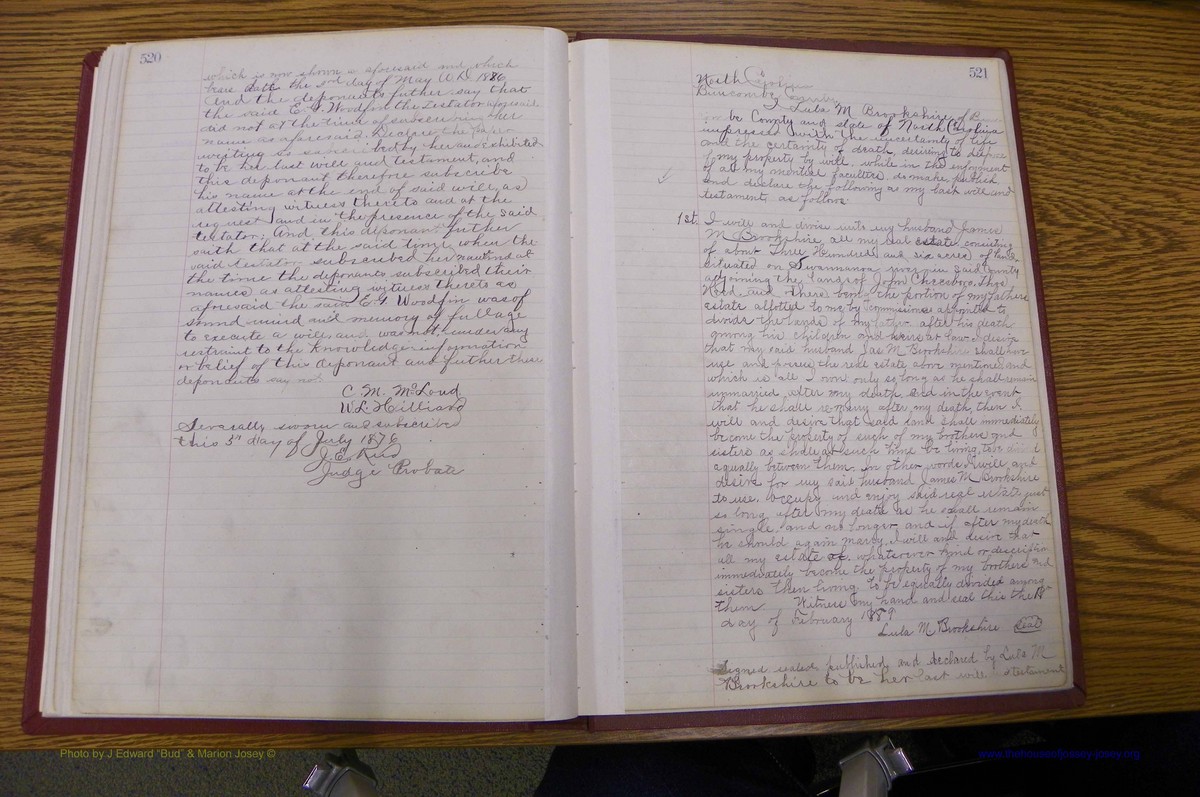 520
which is now shown as aforesaid and which
bears date the 3rd day of May A D. 1886
And the deponants futher say that
the said E. G. Woodfin the testator aforesaid
did not at the time of subscribing her
name as aforesaid. Declare the paper
writing so subscribed by her and exhibited
to be her last will and testament, and
this deponant therefore subscribe
his name at the end of said will, as
attesting witness thereto and at the
request and in the presence of the said
testator; And this deponant futher
saith that at the said time when the
said testator subscribed her name and at
the time the deponants subscribed their
names as attesting witness thereto as
aforesaid the said E. G. Woodfin was of
sound mind and memory of full age
to execute a will, and was not under any
restraint to the knowledge information
or belief of the deponant and futher these
deponants say not.
C. M. McLoud
W. L. Hilliard
Severally sworn and subscribed
this 5th day of July 1876
J. E. Reed
Judge Probate
521
North Carolina
Buncombe County
I Lula M Brookshire of
be County and state of North Carolina
impressed with the uncertainty of life
and the certainty of death, desiring to dispose
of my property by will, while in the enjoyment
of all my mental faculties, do make publish
and declare the following as my last will and
testament, as follows
1st. I will and devise unto my husband James
M. Brookshire, all my real estate consisting
of about Three Hundred and six acres of land
situated on Swannanoa river in said County
adjoining the lands of John Cheesboro, Thos
and others being the portion of my fathers
estate allotted to me by commissioners appointed to
divide the lands of my father after his death
among his children and heirs at law. I desire
that my said husband Jas M Brookshire shall have
use and the real estate above mentioned and
which is all I own only so long as he shall remain
unmarried after my death and in the event
that he shall re-marry after my death then I
will and desire that said land shall immediately
become the property of such of my brothers and
sisters as shall at such time be living, to be
equally between them. In other words I will and
desire for my said husband James M. Brookshire
to use, occupy and enjoy said real estate just
so long after my death as he shall remain
single and no longer and if after my death
he should again marry, I will and desire that
all my estate of whatsoever kind or description
immediately become the property of my brothers and
sisters then living to be equally divided among
them. Witness my hand and seal this the
day of February 1889
Lula M Brookshire Seal
Signed sealed, published, and declared by Lula M
Brookshire to be her last will testament
Photo by J Edward "Bud" & Marion Josey ©
www.thehouseofjossey-josey.org